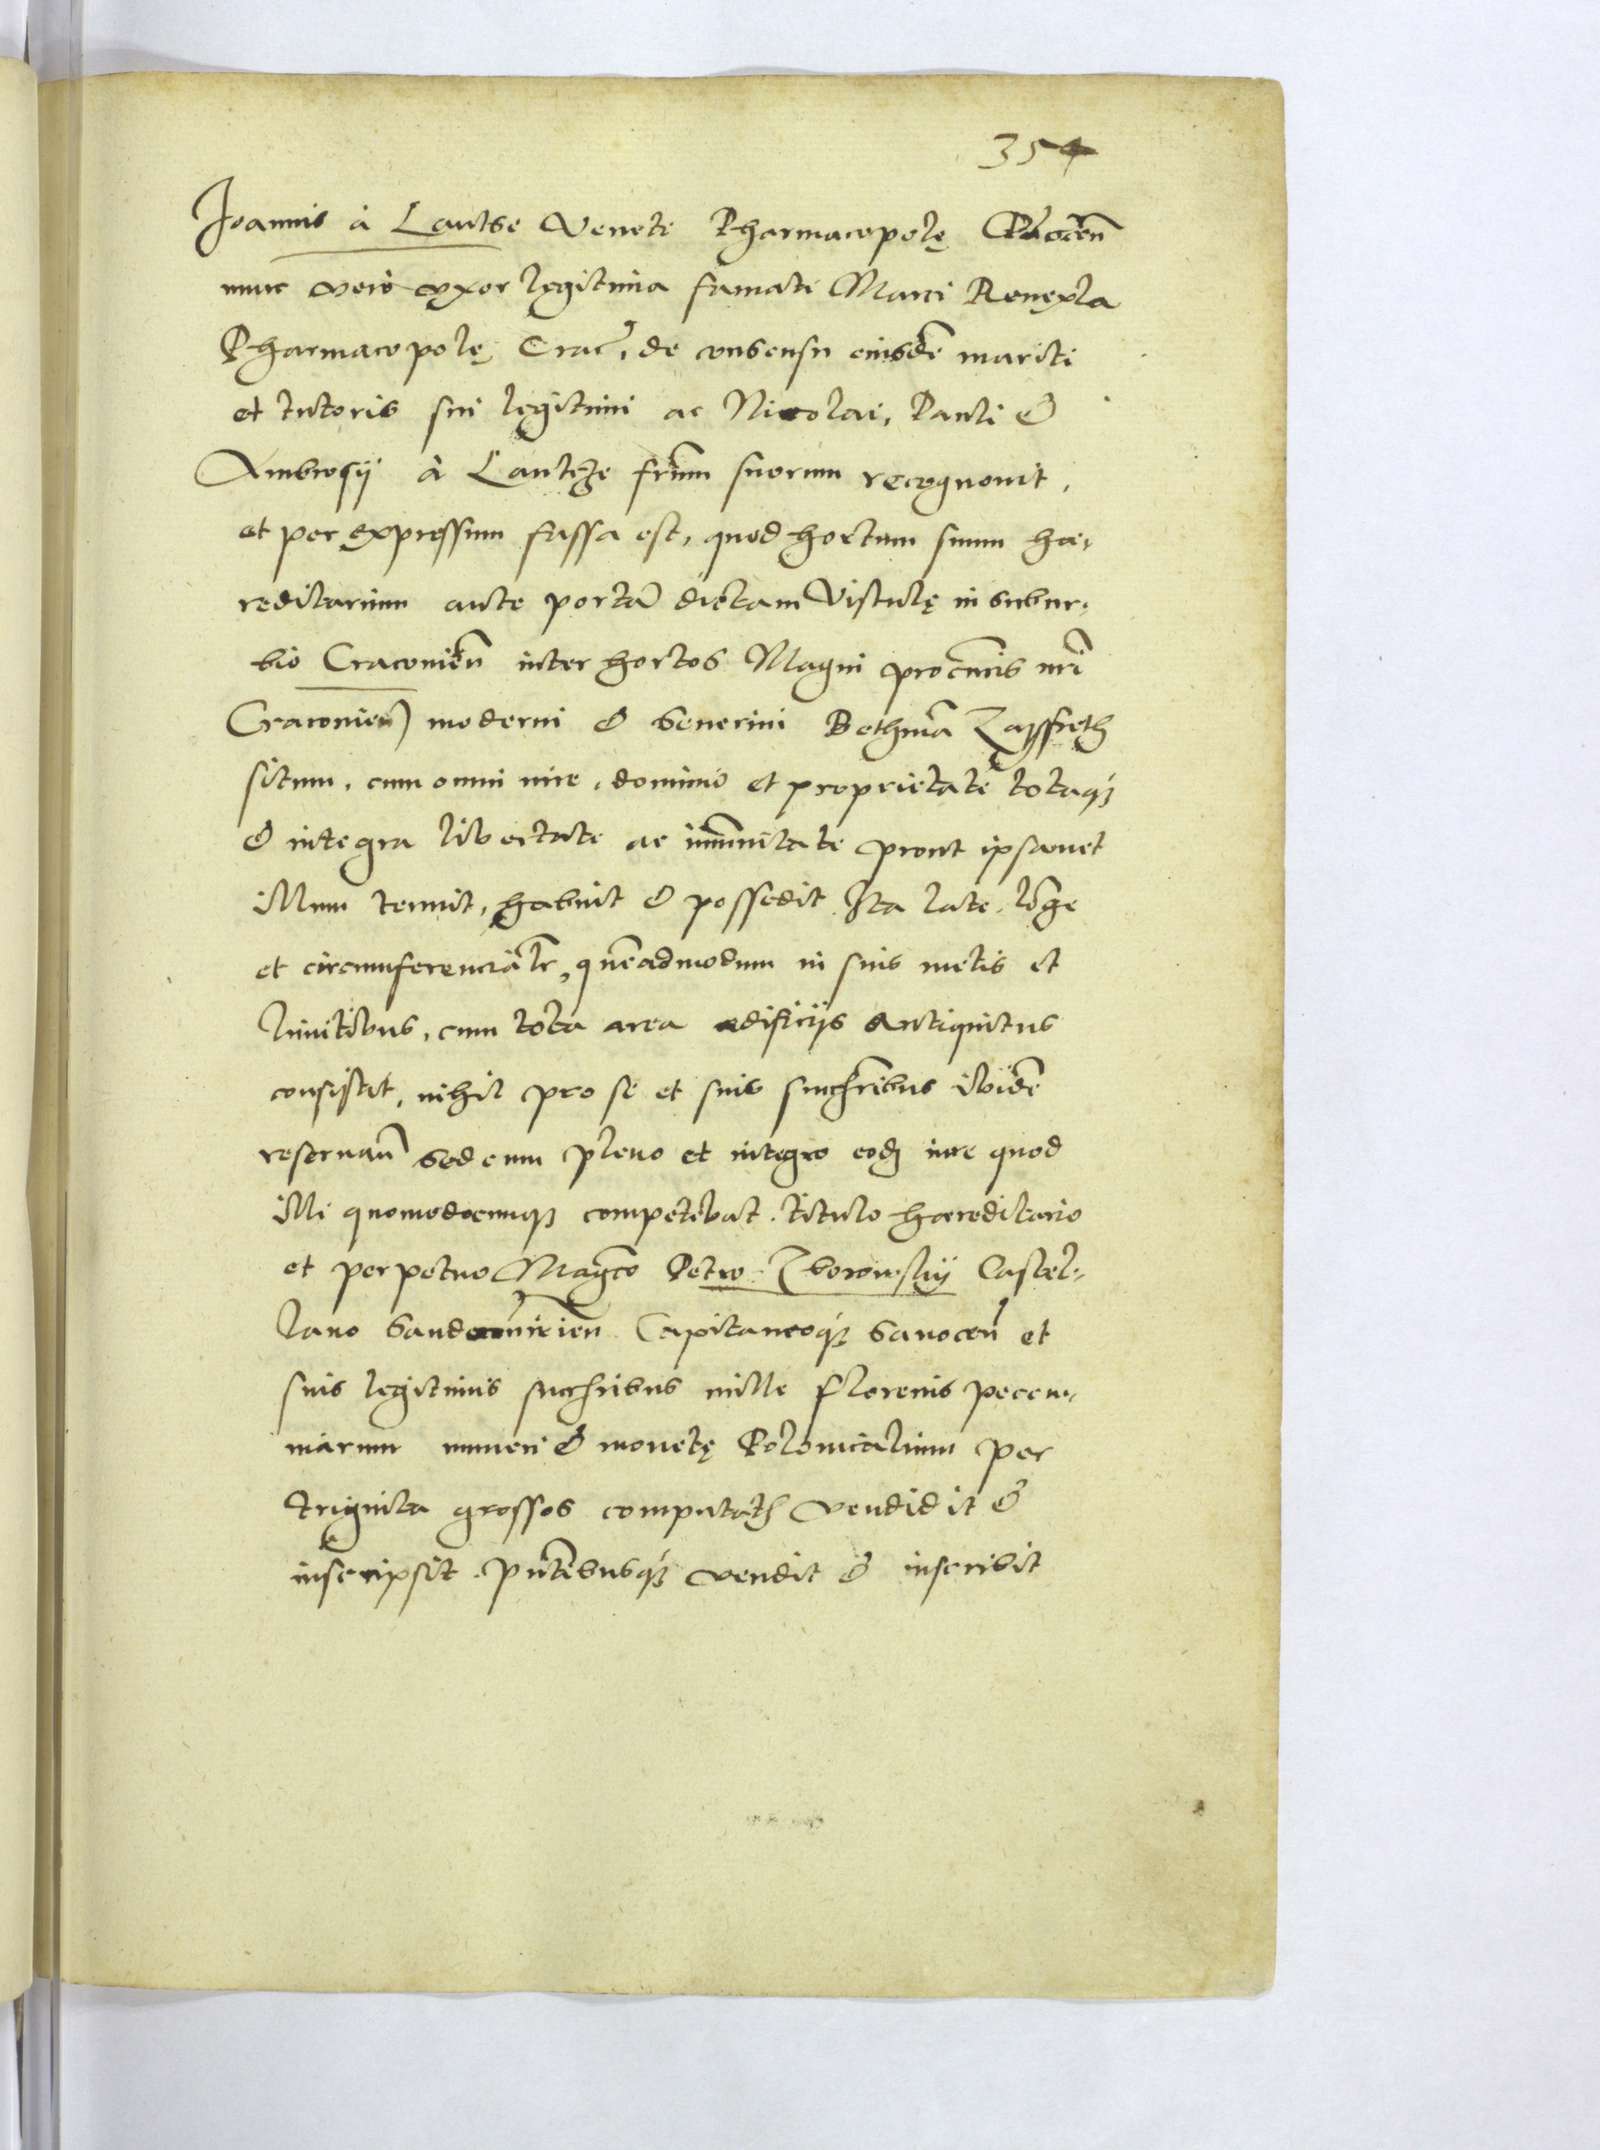 354
Joannis à Lantse Venete Pharmacopolę Plocen̄
nunc vero vxor legitima famati Marci Renexla
Pharmacopolę Crac: de consensu eiusdē mariti
et tutoris sui legitimi ac Nicolai, Pauli &
Ambrosij à Lantcze frūm suorum recognouit,
et per expressum fassa est, quod hortum suum hæ-
reditarium ante portā dictam Vistulę in subur-
bio Craconieñ inter hortos Magni procuris nri
Craconien̄ moderni & Seuerini Bethmā
situm, cum omni iure, dominio et proprietate totaq́ꝫ
& integra libertate ac immūnitate prout ipsamet
illum tenuit, habuit & possedit Ita late, lōge
et circumferenciālr, quēadmodum in suis metis et
limitibus, cum tota area ædificijs antiquitus
consistit, nihil pro se et suis succhribus ibidē
reseruan̄ sed cum pleno et integro eodꝫ iure quod
illi quomodocunqꝫ competebat. titulo hæreditario
et perpetuo Magco Petro Zborowskij Castel-
lano Sandomirien̄ Capitaneoq́ꝫ Sanocen̄ et
suis legitimis succhribus mille florenis pecun-
niarum numeri & monetę Polonicalium per
triginta grossos computatꝫ vendidit &
inscripsit. Pñtibusq́ꝫ vendit & inscribit